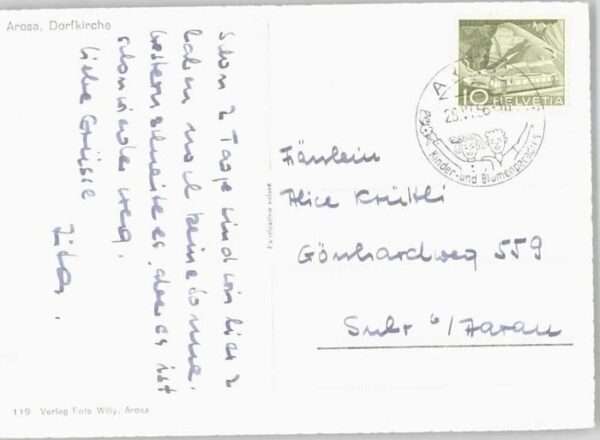 Arosa, Dorfkirche
Schon 2 Tage sind wir hier &
haben noch keine Sonne.
Gestern schneite es, aber es ist
schon wieder weg.
Liebe Grüsse
10 HELVETIA
Kinder- und Blumenparadies
Fräulein
Alice
Gönhardweg 559
Suhr b/Aarau
119 Verlag Foto Willy, Arosa